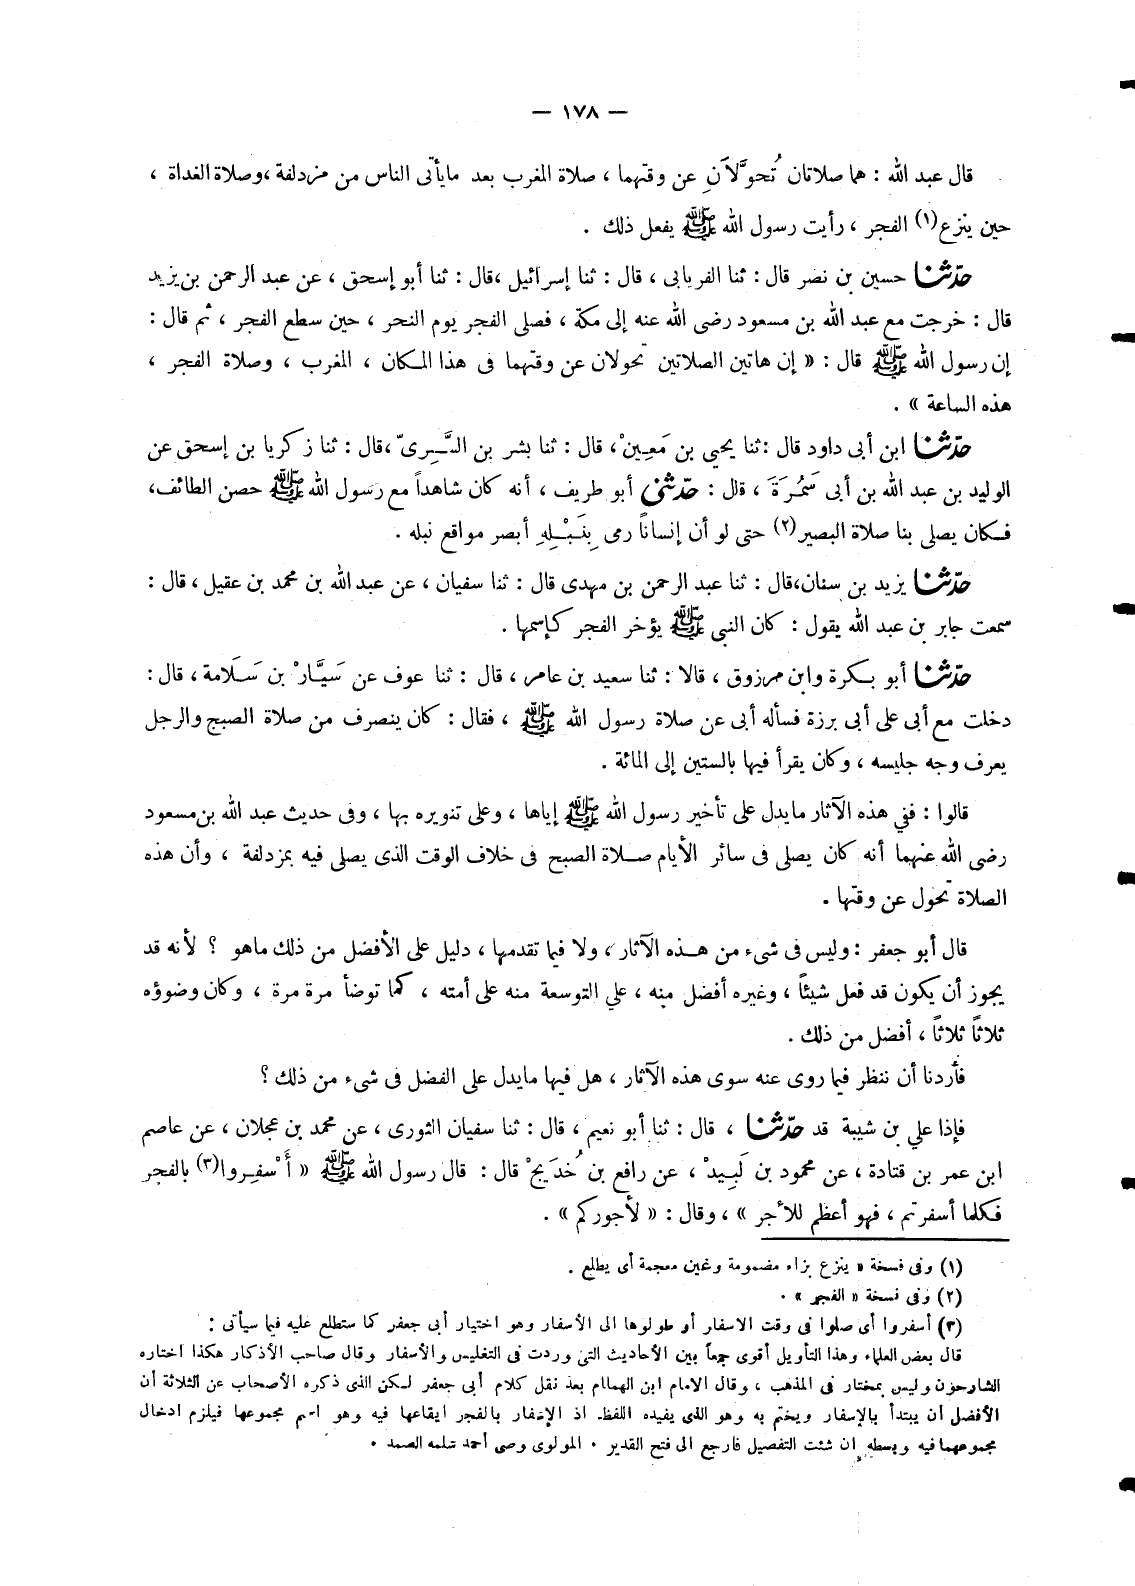 — ١٧٨ —
قال عبد الله : هما صلاتان تُحوَّلاَنِ عن وقتهما ، صلاة المغرب بعد مايأتى الناس من مزدلفة ،وصلاة الغداة ،
حين ينزع(١) الفجر ، رأيت رسول الله ﷺ يفعل ذلك .
حدّثنا حسين بن نصر قال : ثنا الفريابى ، قال : ثنا إسرائيل ،قال : ثنا أبو إسحق ، عن عبد الرحمن بن يزيد
قال : خرجت مع عبد الله بن مسعود رضى الله عنه إلى مكة ، فصلى الفجر يوم النحر ، حين سطع الفجر ، ثم قال :
إن رسول الله ﷺ قال : « إن هاتين الصلاتين تحولان عن وقتهما فى هذا المكان ، المغرب ، وصلاة الفجر ،
هذه الساعة » .
حدّثنا ابن أبى داود قال :ثنا يحيى بن مَعِينْ ، قال : ثنا بشر بن السَّرِىّ ،قال : ثنا زكريا بن إسحق عن
الوليد بن عبد الله بن أبى سَمُرَةَ ، قال : حدّثنى أبو طريف ، أنه كان شاهداً مع رسول الله ﷺ حصن الطائف،
فكان يصلى بنا صلاة البصير(٢) حتى لو أن إنساناً رمى بِنَبْلِهِ أبصر مواقع نبله .
حدّثنا يزيد بن سنان،قال : ثنا عبد الرحمن بن مهدى قال : ثنا سفيان ، عن عبد الله بن محمد بن عقيل ، قال :
سمعت جابر بن عبد الله يقول : كان النبى ﷺ يؤخر الفجر كإسمها .
حدّثنا أبو بكرة وابن مرزوق ، قالا : ثنا سعيد بن عامر ، قال : ثنا عوف عن سَيَّارْ بن سَلَامة ، قال :
دخلت مع أبى على أبى برزة فسأله أبى عن صلاة رسول الله ﷺ ، فقال : كان ينصرف من صلاة الصبح والرجل
يعرف وجه جليسه ، وكان يقرأ فيها بالستين إلى المائة .
قالوا : ففى هذه الآثار مايدل على تأخير رسول الله ﷺ إياها ، وعلى تنويره بها ، وفى حديث عبد الله بن مسعود
رضى الله عنهما أنه كان يصلى فى سائر الأيام صلاة الصبح فى خلاف الوقت الذى يصلى فيه بمزدلفة ، وأن هذه
الصلاة تحول عن وقتها .
قال أبو جعفر : وليس فى شىء من هذه الآثار ، ولا فيما تقدمها ، دليل على الأفضل من ذلك ماهو ؟ لأنه قد
يجوز أن يكون قد فعل شيئاً ، وغيره أفضل منه ، علي التوسعة منه على أمته ، كما توضأ مرة مرة ، وكان وضوؤه
ثلاثاً ثلاثاً ، أفضل من ذلك .
فأردنا أن ننظر فيما روى عنه سوى هذه الآثار ، هل فيها مايدل على الفضل فى شىء من ذلك ؟
فإذا علي بن شيبة قد حدّثنا ، قال : ثنا أبو نعيم ، قال : ثنا سفيان الثورى ، عن محمد بن عجلان ، عن عاصم
ابن عمر بن قتادة ، عن محمود بن لَبِيدْ ، عن رافع بن خُدَيجْ قال : قال رسول الله ﷺ « أَسْفِروا(٣) بالفجر
فكلما أسفرتم ، فهو أعظم للأجر » ، وقال : « لأجوركم » .
(١) وفى نسخة « ينزغ بزاء مضمومة وغين معجمة أى يطلع .
(٢) وفى نسخة « الفجر » .
(٣) أسفروا أى صلوا فى وقت الاسفار أو طولوها الى الأسفار وهو اختيار أبى جعفر كما ستطلع عليه فيما سيأتى :
قال بعض العلماء وهذا التأويل أقوى جمعاً بين الأحاديث التى وردت فى التغليس والأسفار وقال صاحب الأذكار هكذا اختاره
الشارحون وليس بمختار فى المذهب ، وقال الامام ابن الهمام بعد نقل كلام أبى جعفر لكن الذى ذكره الأصحاب عن الثلاثة أن
الأفضل أن يبتدأ بالإسفار ويختم به وهو الذى يفيده اللفظ اذ الإسفار بالفجر ايقاعها فيه وهو اسم مجموعها فيلزم ادخال
مجموعهما فيه وبسطه إن شئت التفصيل فارجع الى فتح القدير . المولوى وصى أحمد سلمه الصمد .